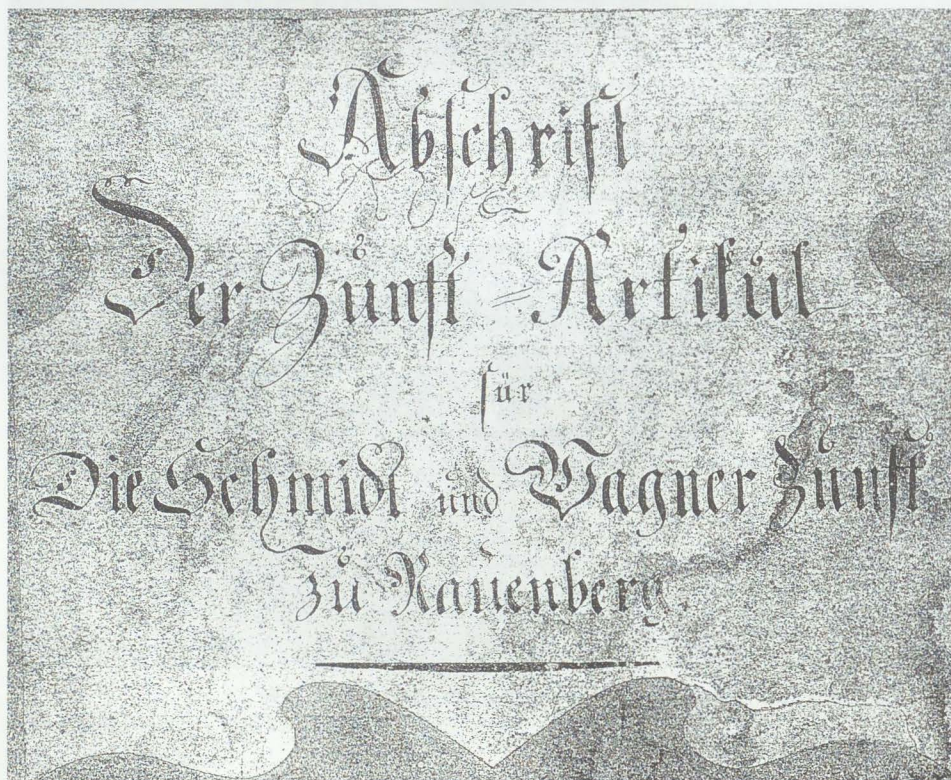 Abschrift
Der Zunft-Artikul
für
Die Schmidt und Wagner Zunft
zu Rauenberg.